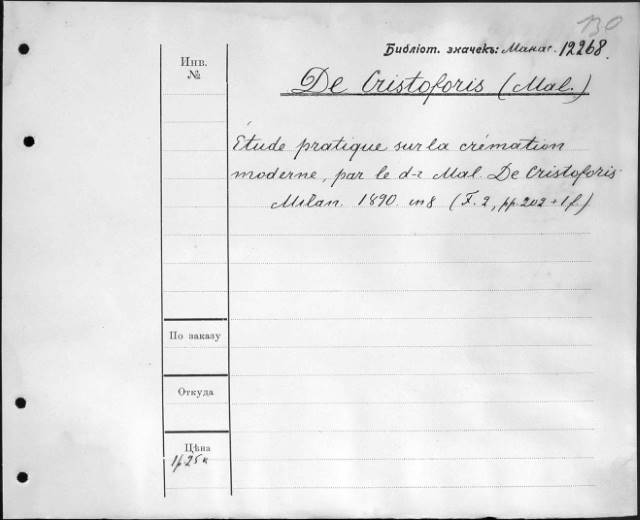 130
Библіот. значекъ: Манас. 12268.
Инв.
№
De Cristoforis (Mal.)
Étude pratique sur la crémation
moderne, par le d-r Mal. De Cristoforis
Milan. 1890. in 8 (F. 2, pp 202 + 1 f.)
По заказу
Откуда
Цѣна
1р 25к